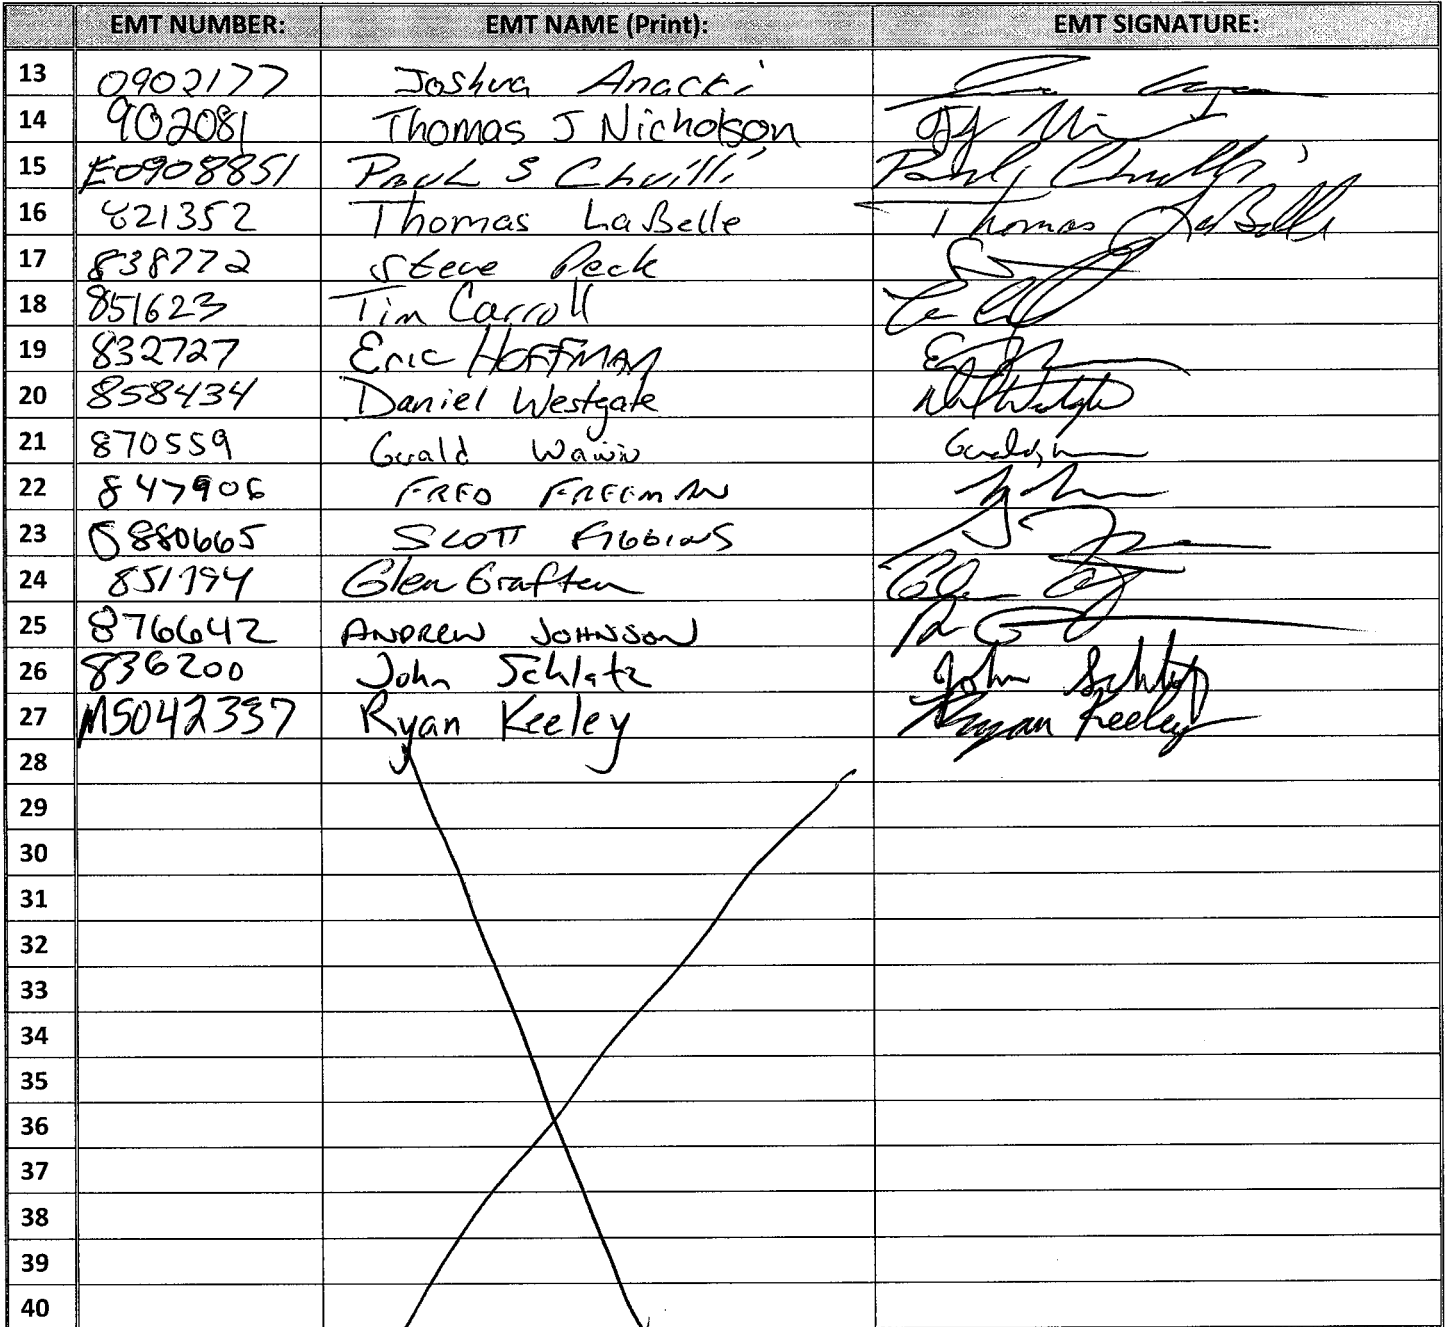 EMT NUMBER: EMT NAME (Print): EMT SIGNATURE:
13 0902177 Joshua Anacki
14 902081 Thomas J Nicholson
15 E0908851 Paul S Chuilli
16 821352 Thomas LaBelle Thomas LaBelle
17 838772 Steve Peck
18 851623 Tim Carroll
19 832727 Eric HOFFMAN
20 858434 Daniel Westgate
21 870559 Gerald
22 847906 FRED FREEMAN
23 880665 SCOTT
24 851794 Glen Graften
25 876642 ANDREW JOHNSON
26 836200 John Schlatz John
27 M5042337 Ryan Keeley Ryan Keeley
28
29
30
31
32
33
34
35
36
37
38
39
40